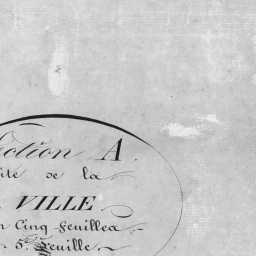 Section A.
dite de la
VILLE
en Cinq feuilles
5.e feuille.